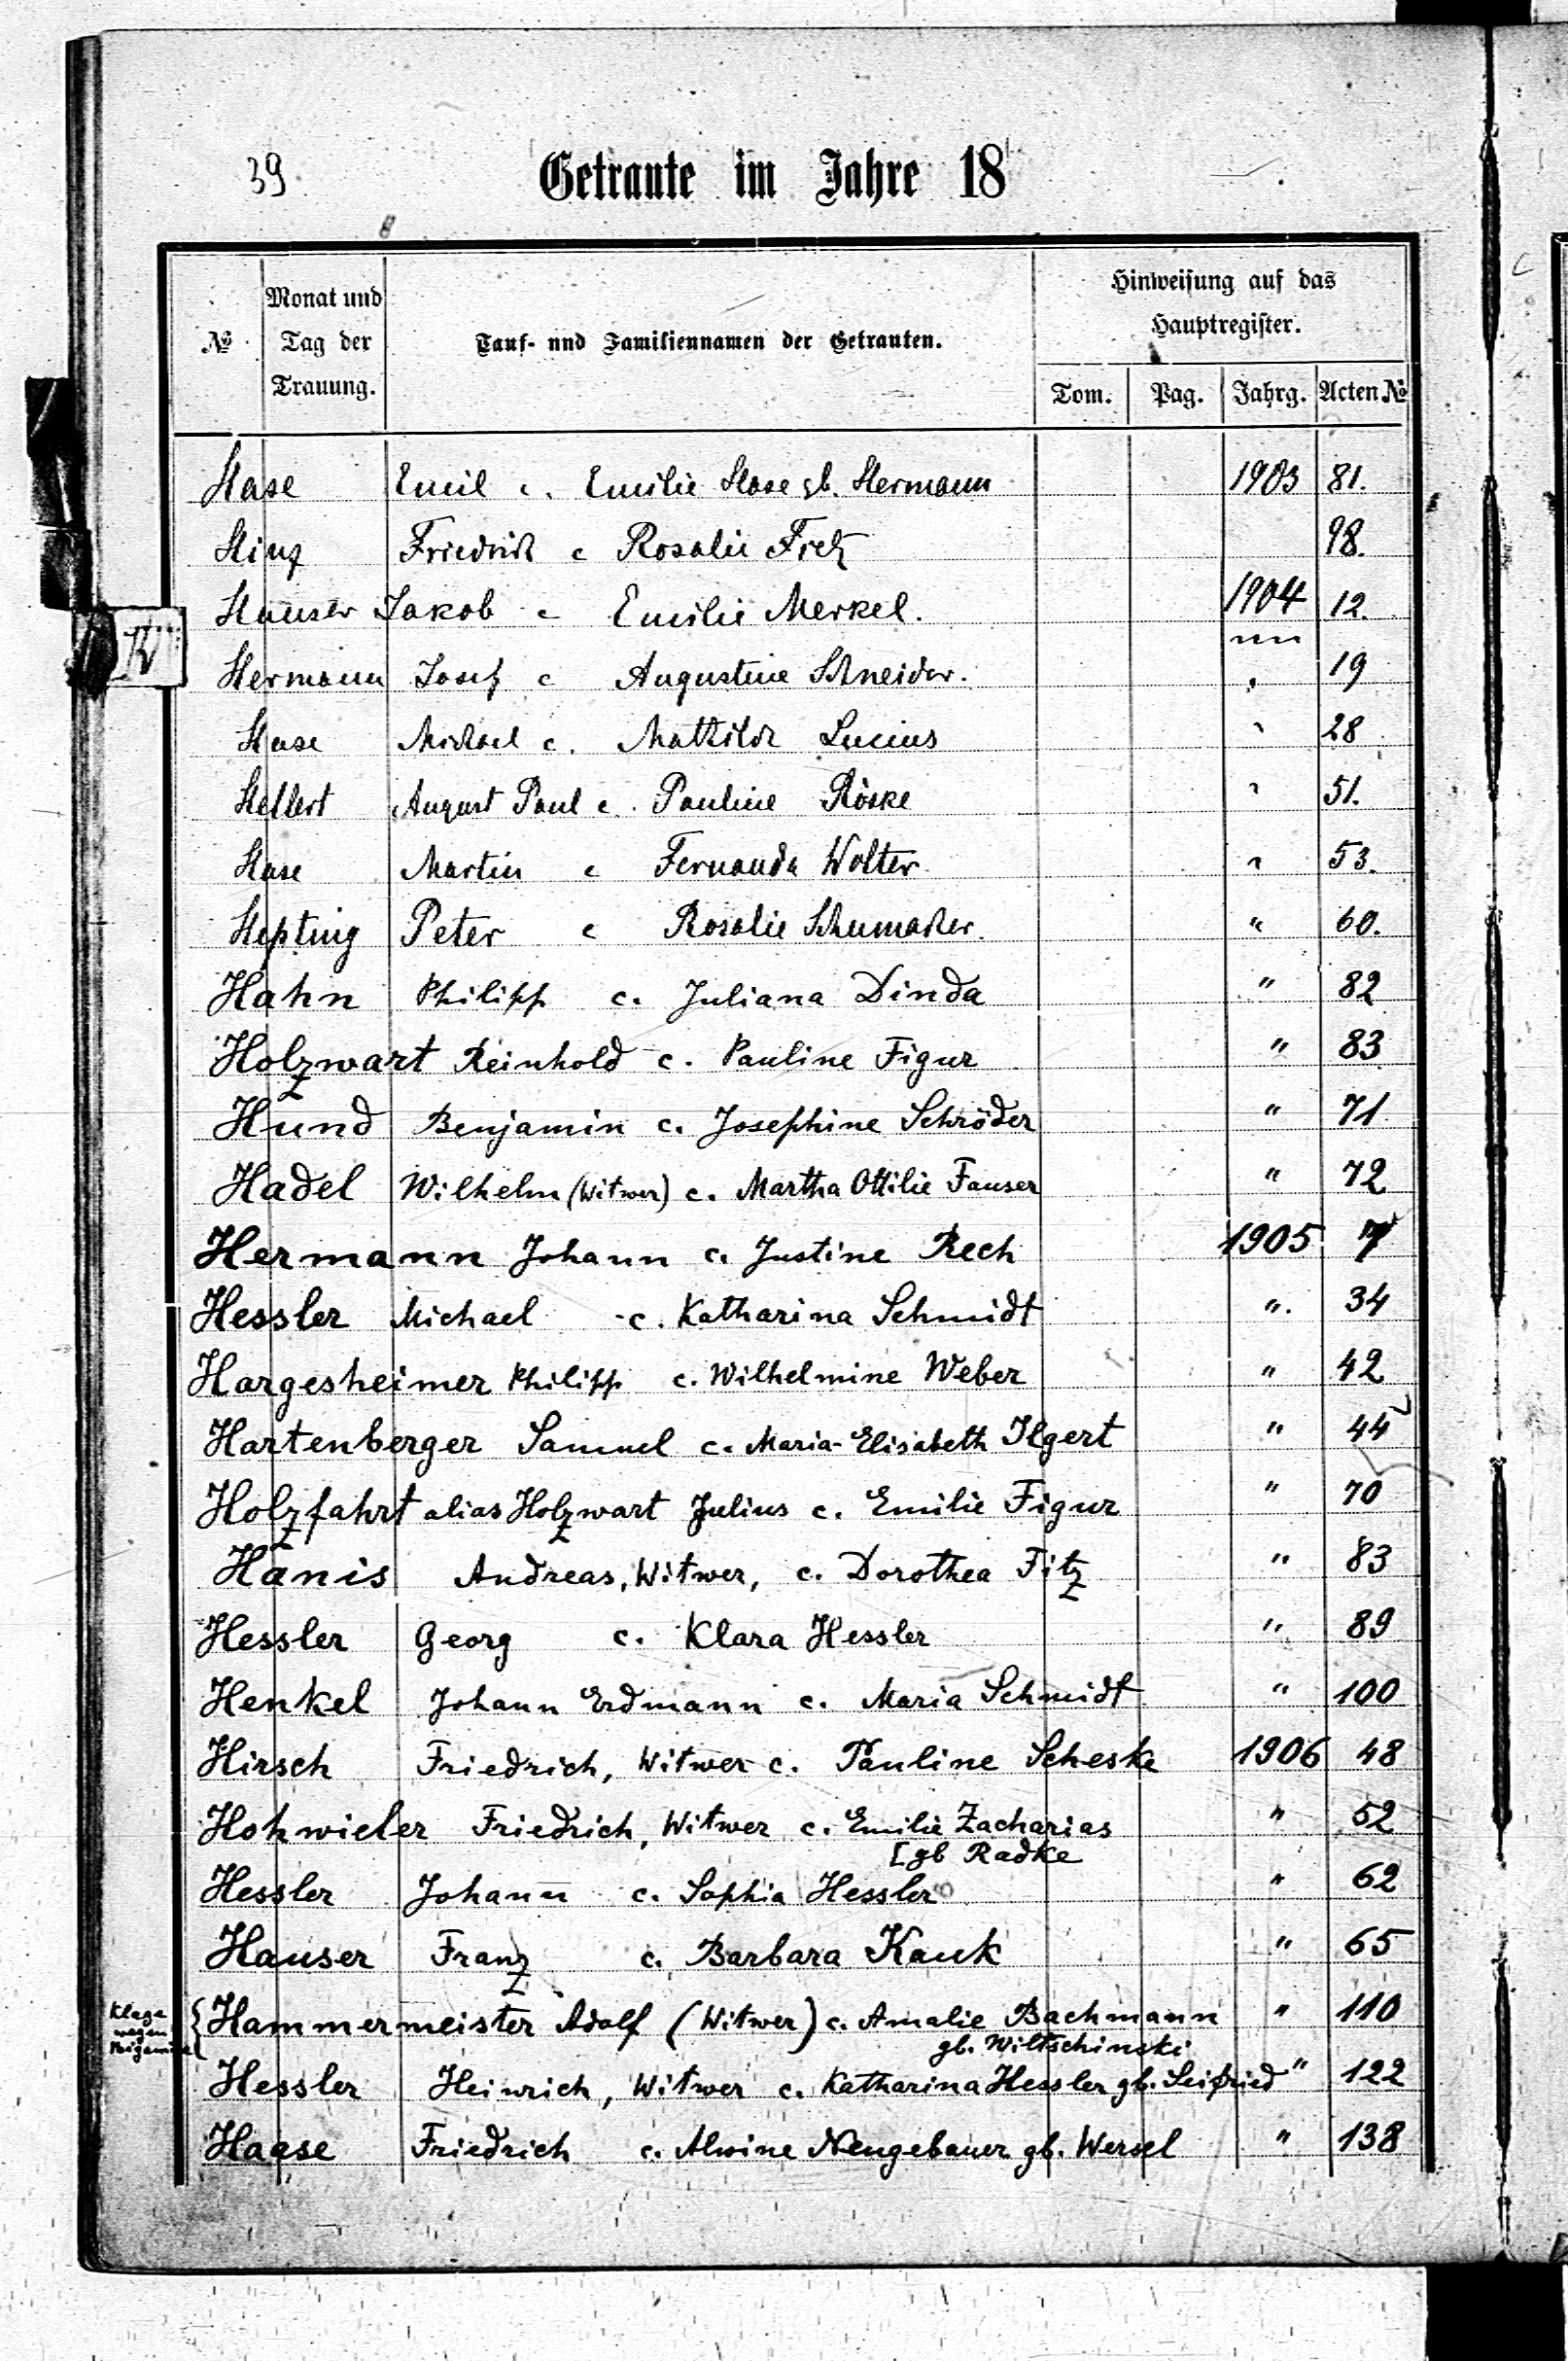 39
Getraute im Jahre 18
№
Monat und Tag der Trauung.
Tauf- und Familiennamen der Getrauten.
Hinweisung auf das Hauptregister.
Tom. Pag. Jahrg. Acten №
Hase Emil c. Emilie Hase gb. Hermann 1903 81.
Hinz Friedrich c Rosalie Fietz 98.
Hauser Jakob c Emilie Merkel. 1904 12.
Hermann Josef c Augustine Schneider. " 19
Hase Michael c. Mathilde Lucius " 28
Hellert August Paul c. Pauline Röske " 51.
Hase Martin c Fernanda Wolter. " 53.
Hepting Peter c Rosalie Schumacher. " 60.
Hahn Philipp c. Juliana Dinda " 82
Holzwart Reinhold c. Pauline Figur " 83
Hund Benjamin c. Josephine Schröder " 71
Hadel Wilhelm (Witwer) c. Martha Ottilie Fauser " 72
Hermann Johann c. Justine Rech 1905 7
Hessler Michael c. Katharina Schmidt " 34
Hargesheimer Philipp c. Wilhelmine Weber " 42
Hartenberger Samuel c. Maria-Elisabeth Ilgert " 44
Holzfahrt alias Holzwart Julius c. Emilie Figur " 70
Hanis Andreas, Witwer, c. Dorothea Fitz " 83
Hessler Georg c. Klara Hessler " 89
Henkel Johann Erdmann c. Maria Schmidt " 100
Hirsch Friedrich, Witwer c. Pauline Scheske 1906 48
Hohwieler Friedrich, Witwer c. Emilie Zacharias " 52
[gb Radke
Hessler Johann c. Sophia Hessler " 62
Hauser Franz c. Barbara Kauk " 65
Klage
wegen
Bigamie
{Hammermeister Adolf (Witwer) c. Amalie Bachmann " 110
gb. Wiltschinski
Hessler Heinrich, Witwer c. Katharina Hessler gb. Seifried " 122
Haase Friedrich c. Alwine Neugebauer gb. Wersel " 138